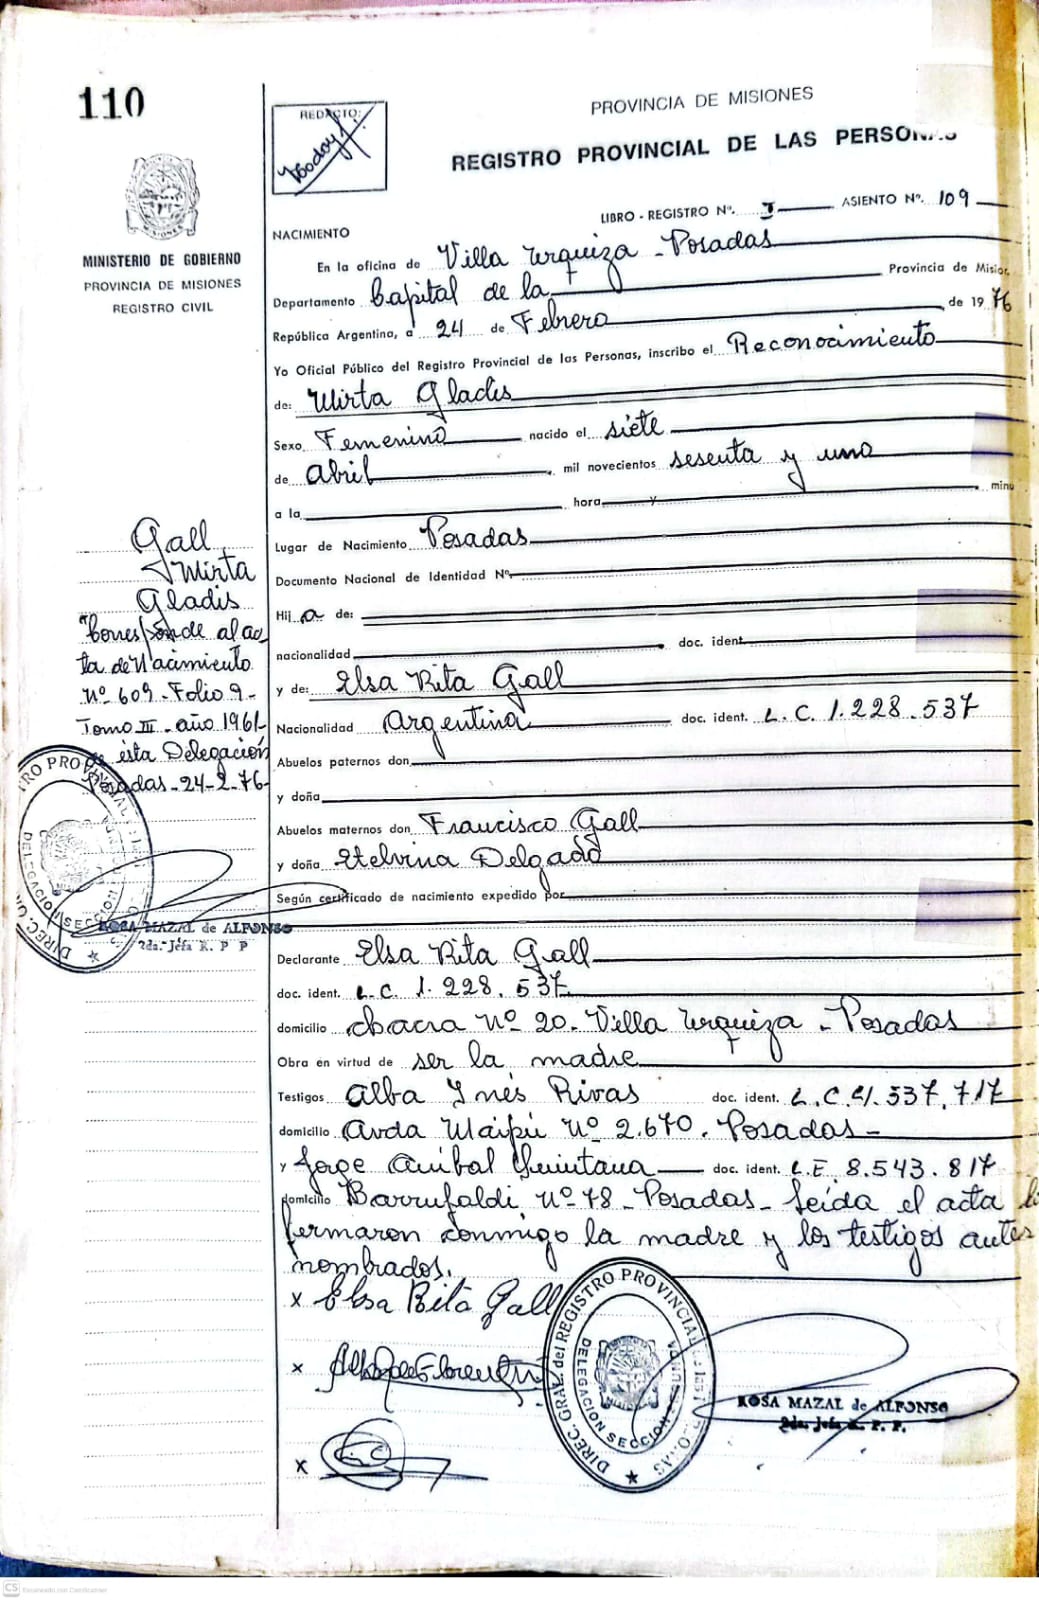 110
REDACTO:
PROVINCIA DE MISIONES
REGISTRO PROVINCIAL DE LAS PERSONAS
LIBRO - REGISTRO Nº. I ASIENTO Nº. 109
MINISTERIO DE GOBIERNO
PROVINCIA DE MISIONES
REGISTRO CIVIL
NACIMIENTO
En la oficina de Villa Urquiza - Posadas
Departamento Capital de la Provincia de Mision
República Argentina, a 24 de Febrero de 1976
Yo Oficial Público del Registro Provincial de las Personas, inscribo el Reconocimiento
de: Mirta Gladis
Sexo Femenino nacido el siete
de Abril mil novecientos sesenta y uno
a la hora y minu
Lugar de Nacimiento Posadas
Documento Nacional de Identidad Nº
Hij a de:
nacionalidad doc. ident.
y de: Elsa Rita Gall
Nacionalidad Argentina doc. ident. L.C. 1.228.537
Abuelos paternos don
y doña
Abuelos maternos don Francisco Gall
y doña Etelvina Delgado
Según certificado de nacimiento expedido por
Declarante Elsa Rita Gall
doc. ident. L.C. 1.228.537
domicilio chacra Nº 20 - Villa Urquiza - Posadas
Obra en virtud de ser la madre
Testigos Alba Inés Rivas doc. ident. L.C. 4.537.717
domicilio Avda Maipú Nº 2.670. Posadas -
y Jorge Anibal Quintana doc. ident. L.E. 8.543.817
domicilio Barrufaldi Nº 78 - Posadas - Leída el acta la
fermaron conmigo la madre y los testigos antes
nombrados.
x Elsa Rita Gall
x
x
Gall
Mirta
Gladis
Corresponde al ac
ta de Nacimiento
Nº 609 - Folio 9 -
Tomo III - año 1961 -
de ésta Delegación
Posadas - 24-2-76 -
ROSA MAZAL de ALFONSO
2da. Jefa R. P. P
DIREC. GRAL. del REGISTRO PROVINCIAL de las PERSONAS
DELEGACION SECCION
ROSA MAZAL de ALFONSO
2da. Jefa R. P. P.
CS Escaneado con CamScanner